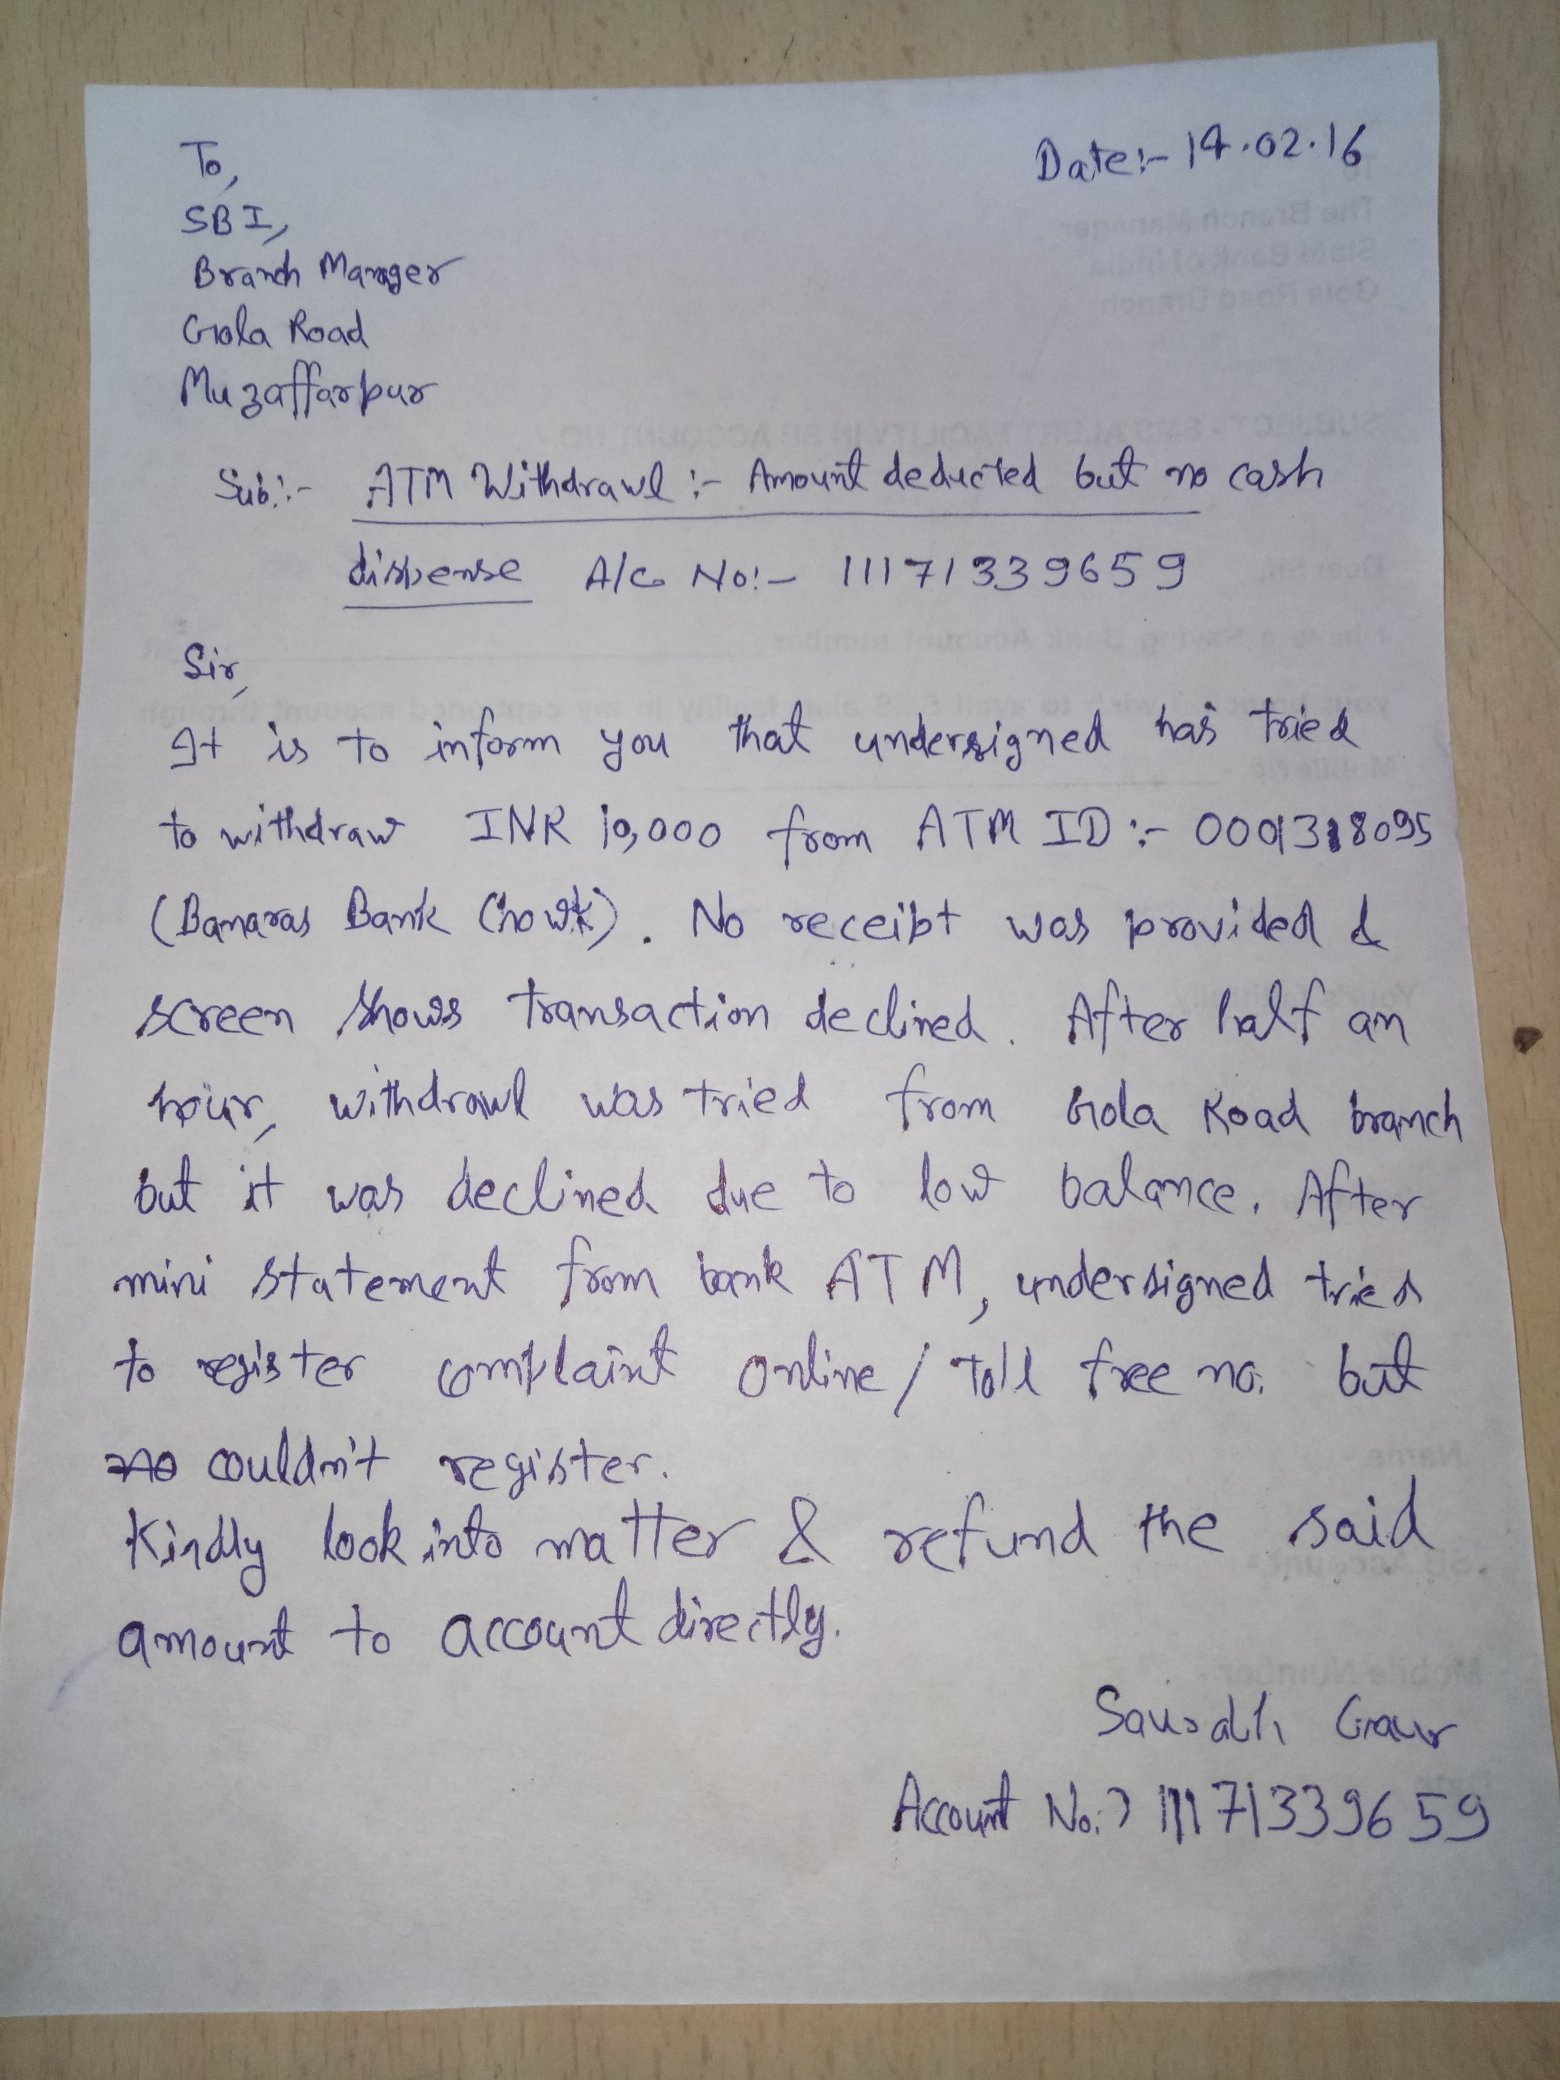 To,
Date:- 14.02.16
SBI,
Branch Manager
Gola Road
Muzaffarpur
Sub:- ATM Withdrawl :- Amount deducted but no cash
dispense A/c No:- 11171339659
Sir,
It is to inform you that undersigned has tried
to withdraw INR 10,000 from ATM ID :- 0001318095
(Banaras Bank Chowk). No receipt was provided &
screen shows transaction declined. After half an
hour, withdrawl was tried from Gola Road branch
but it was declined due to low balance. After
mini statement from bank ATM, undersigned tried
to register complaint online / toll free no. but
no couldn't register.
Kindly look into matter & refund the said
amount to account directly.
Saurabh Gaur
Account No:- 11171339659